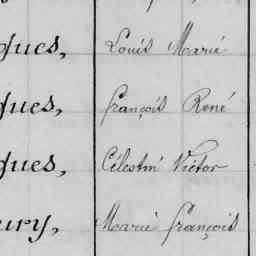 ques, Louis Marie
ques, François René
ques, Célestin Victor
ury, Marie François